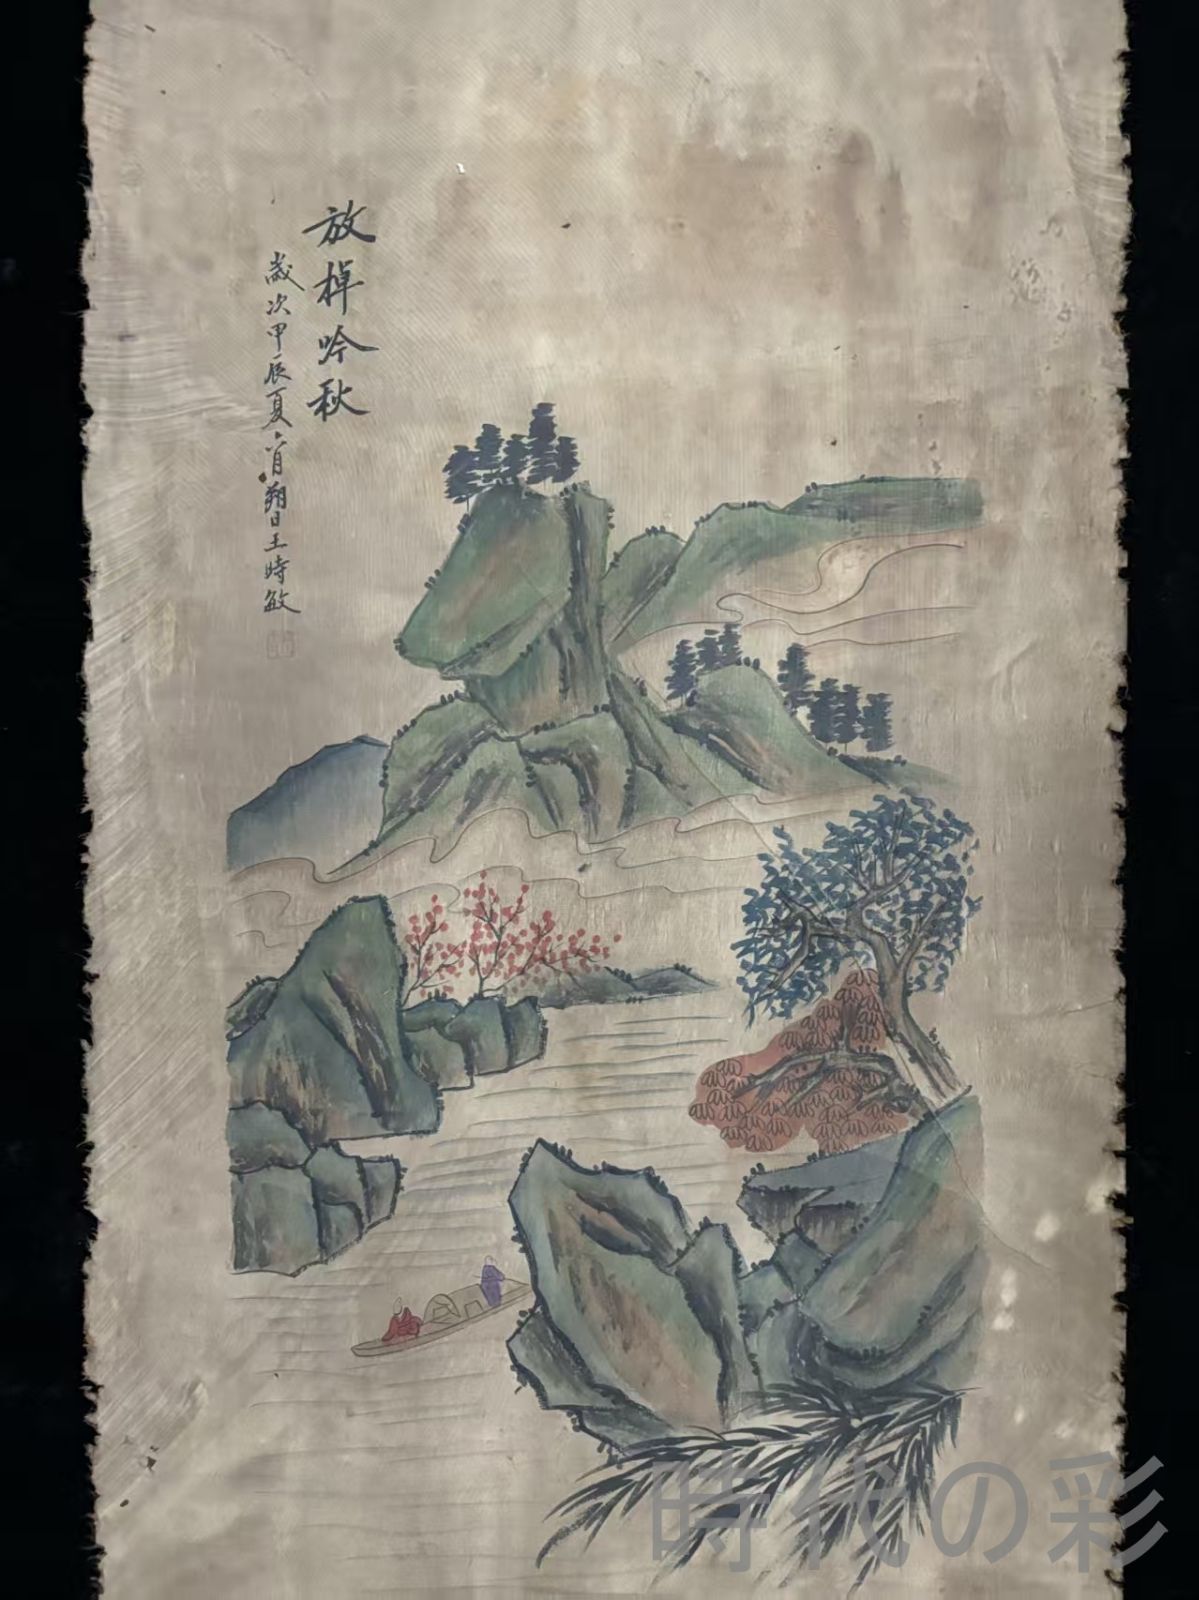 放棹吟秋
歲次甲辰夏六月朔日王時敏
時代の彩